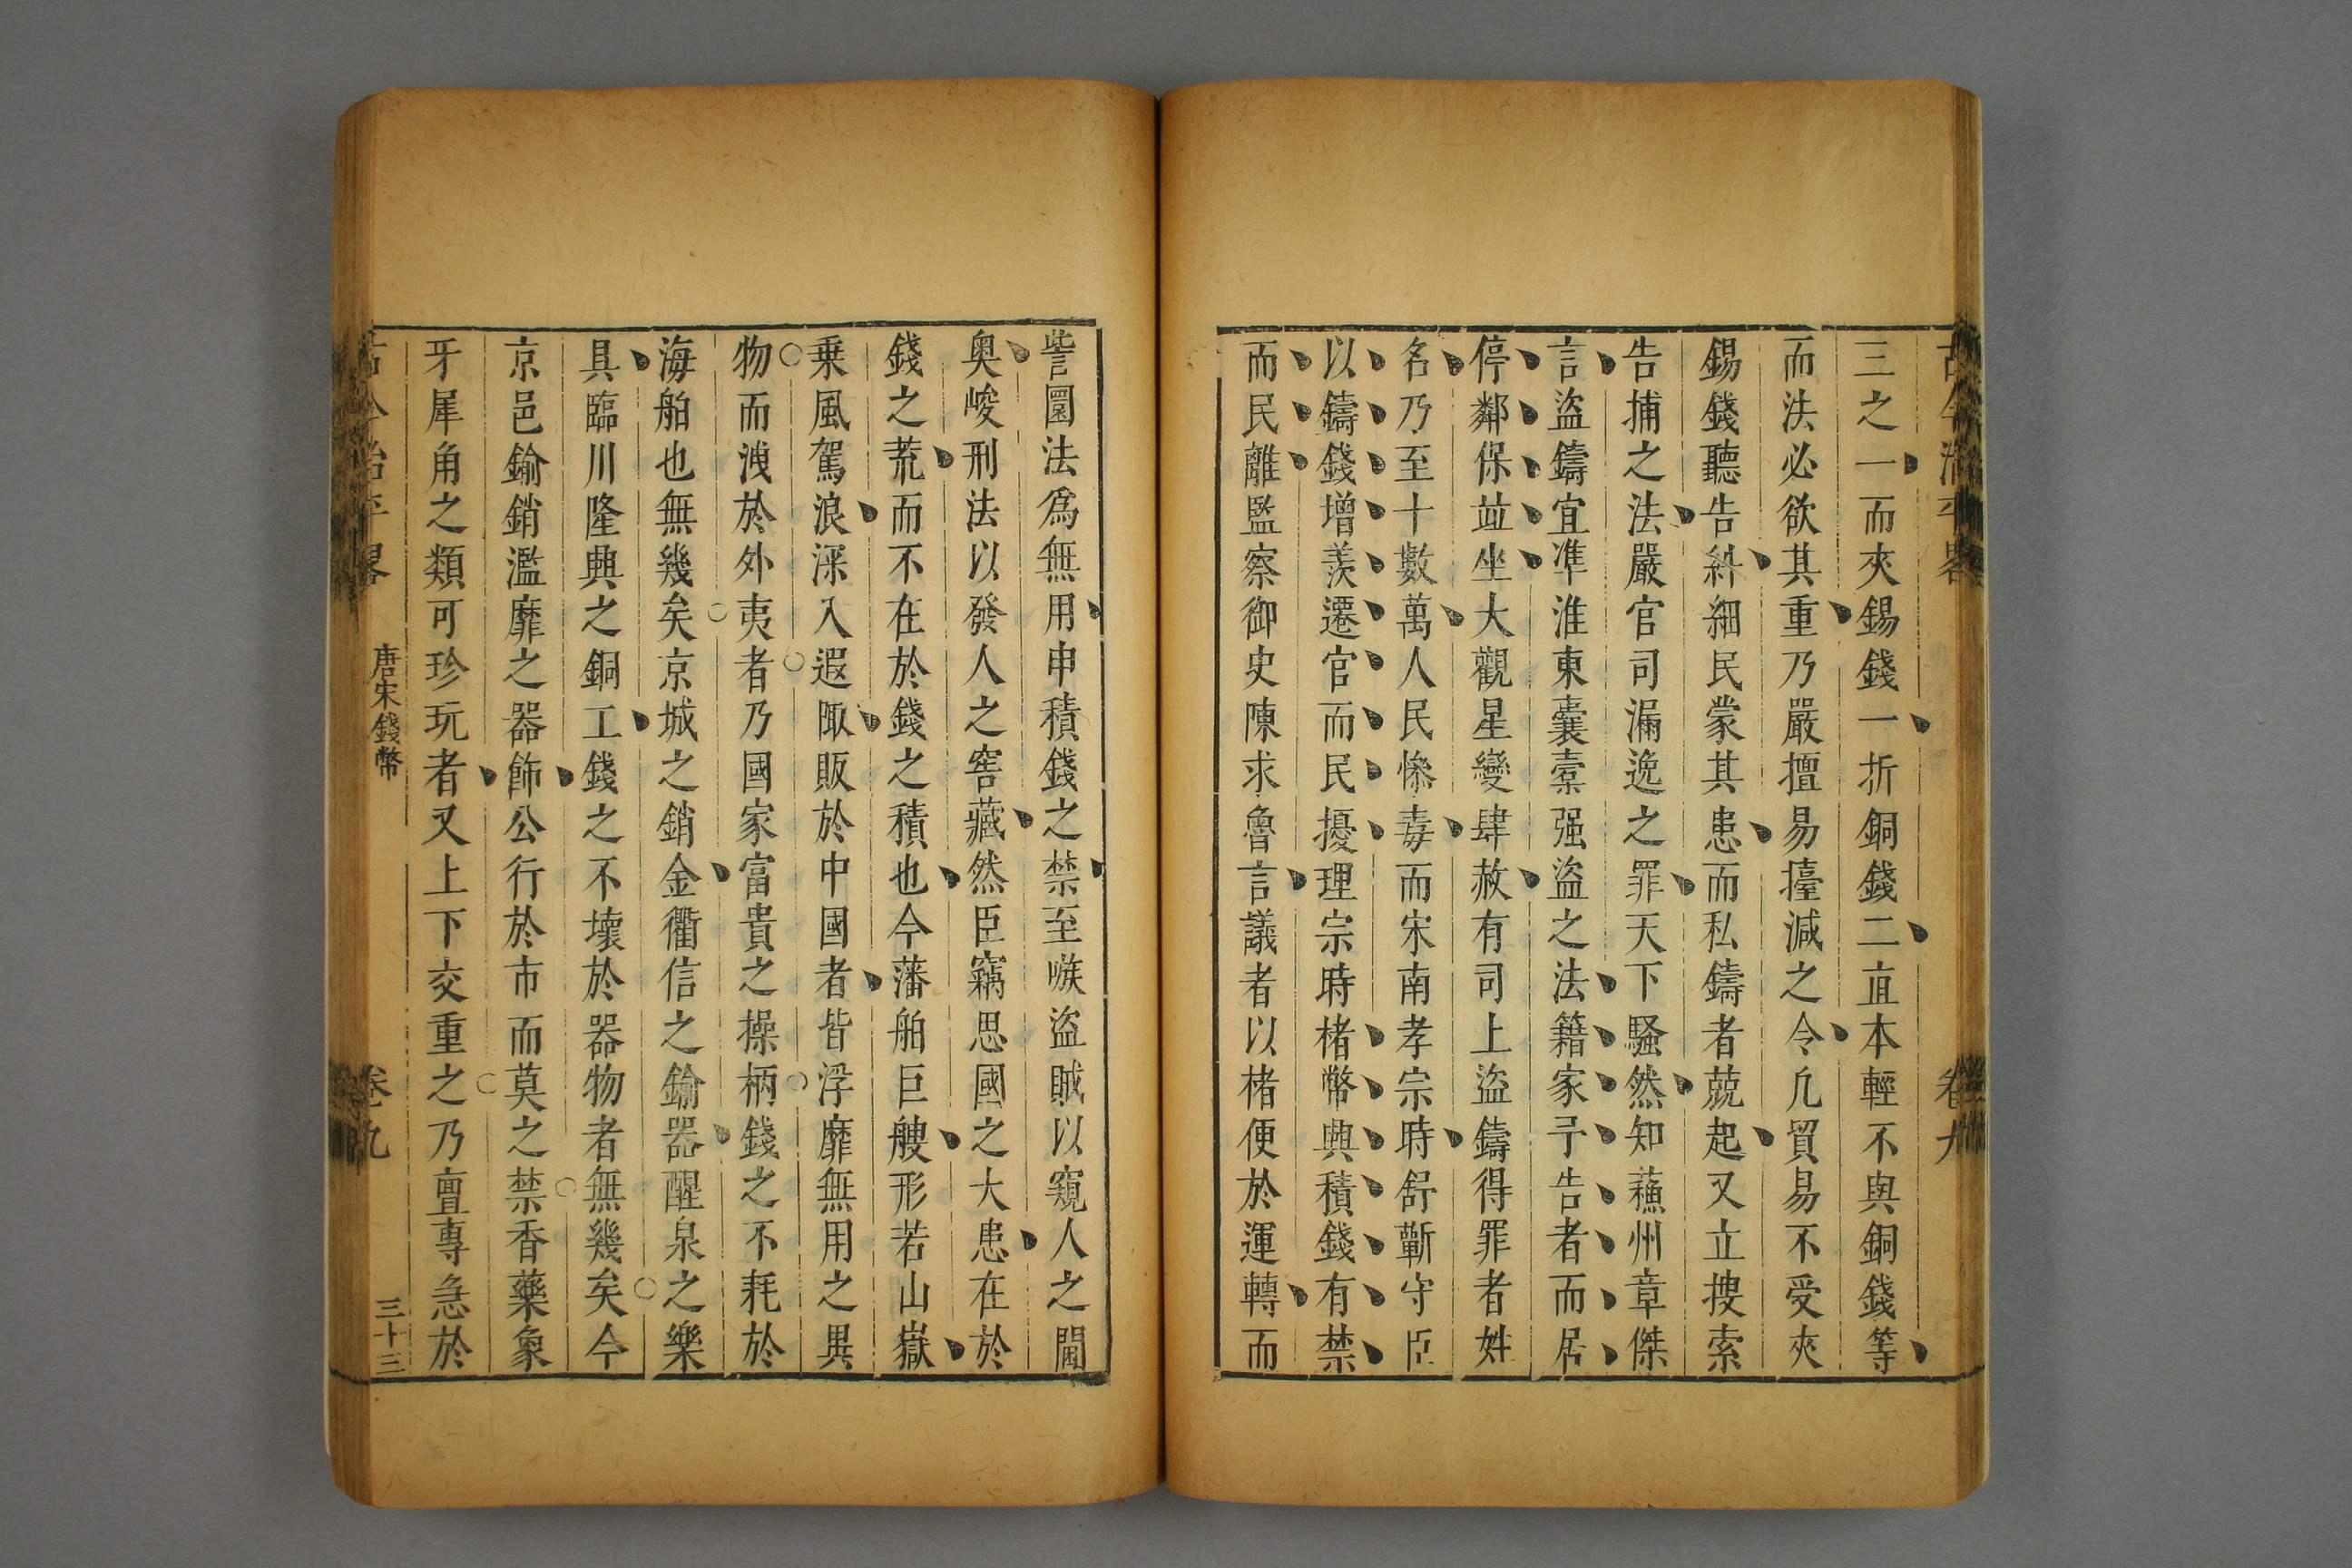 古今治平畧
卷九
三之一而夾錫錢一折銅錢二直本輕不與銅錢等
而法必欲其重乃嚴擅易擡減之令凢貿易不受夾
錫錢聽告糾細民蒙其患而私鑄者兢起又立捜索
告捕之法嚴官司漏逸之罪天下騷然知蘓州章傑
言盜鑄宜凖淮東囊橐强盜之法籍家予告者而居
停鄰保竝坐大觀星變肆赦有司上盜鑄得罪者姓
名乃至十數萬人民慘毒而宋南孝宗時舒蘄守臣
以鑄錢增羡遷官而民擾理宗時楮幣興積錢有禁
而民離監察御史陳求魯言議者以楮便於運轉而
訾圜法爲無用申積錢之禁至嗾盜賊以窺人之閫
奧峻刑法以發人之窖藏然臣竊思國之大患在於
錢之荒而不在於錢之積也今蕃舶巨艘形若山嶽
乗風駕浪深入遐陬販於中國者皆浮靡無用之異
物而洩於外夷者乃國家富貴之操柄錢之不耗於
海舶也無幾矣京城之銷金衢信之鍮器醒泉之樂
具臨川隆興之銅工錢之不壞於器物者無幾矣今
京邑鍮銷濫靡之器飾公行於市而莫之禁香藥象
牙犀角之類可珍玩者又上下交重之乃亶專急於
古今治平畧
唐宋錢幣
卷九
三十三